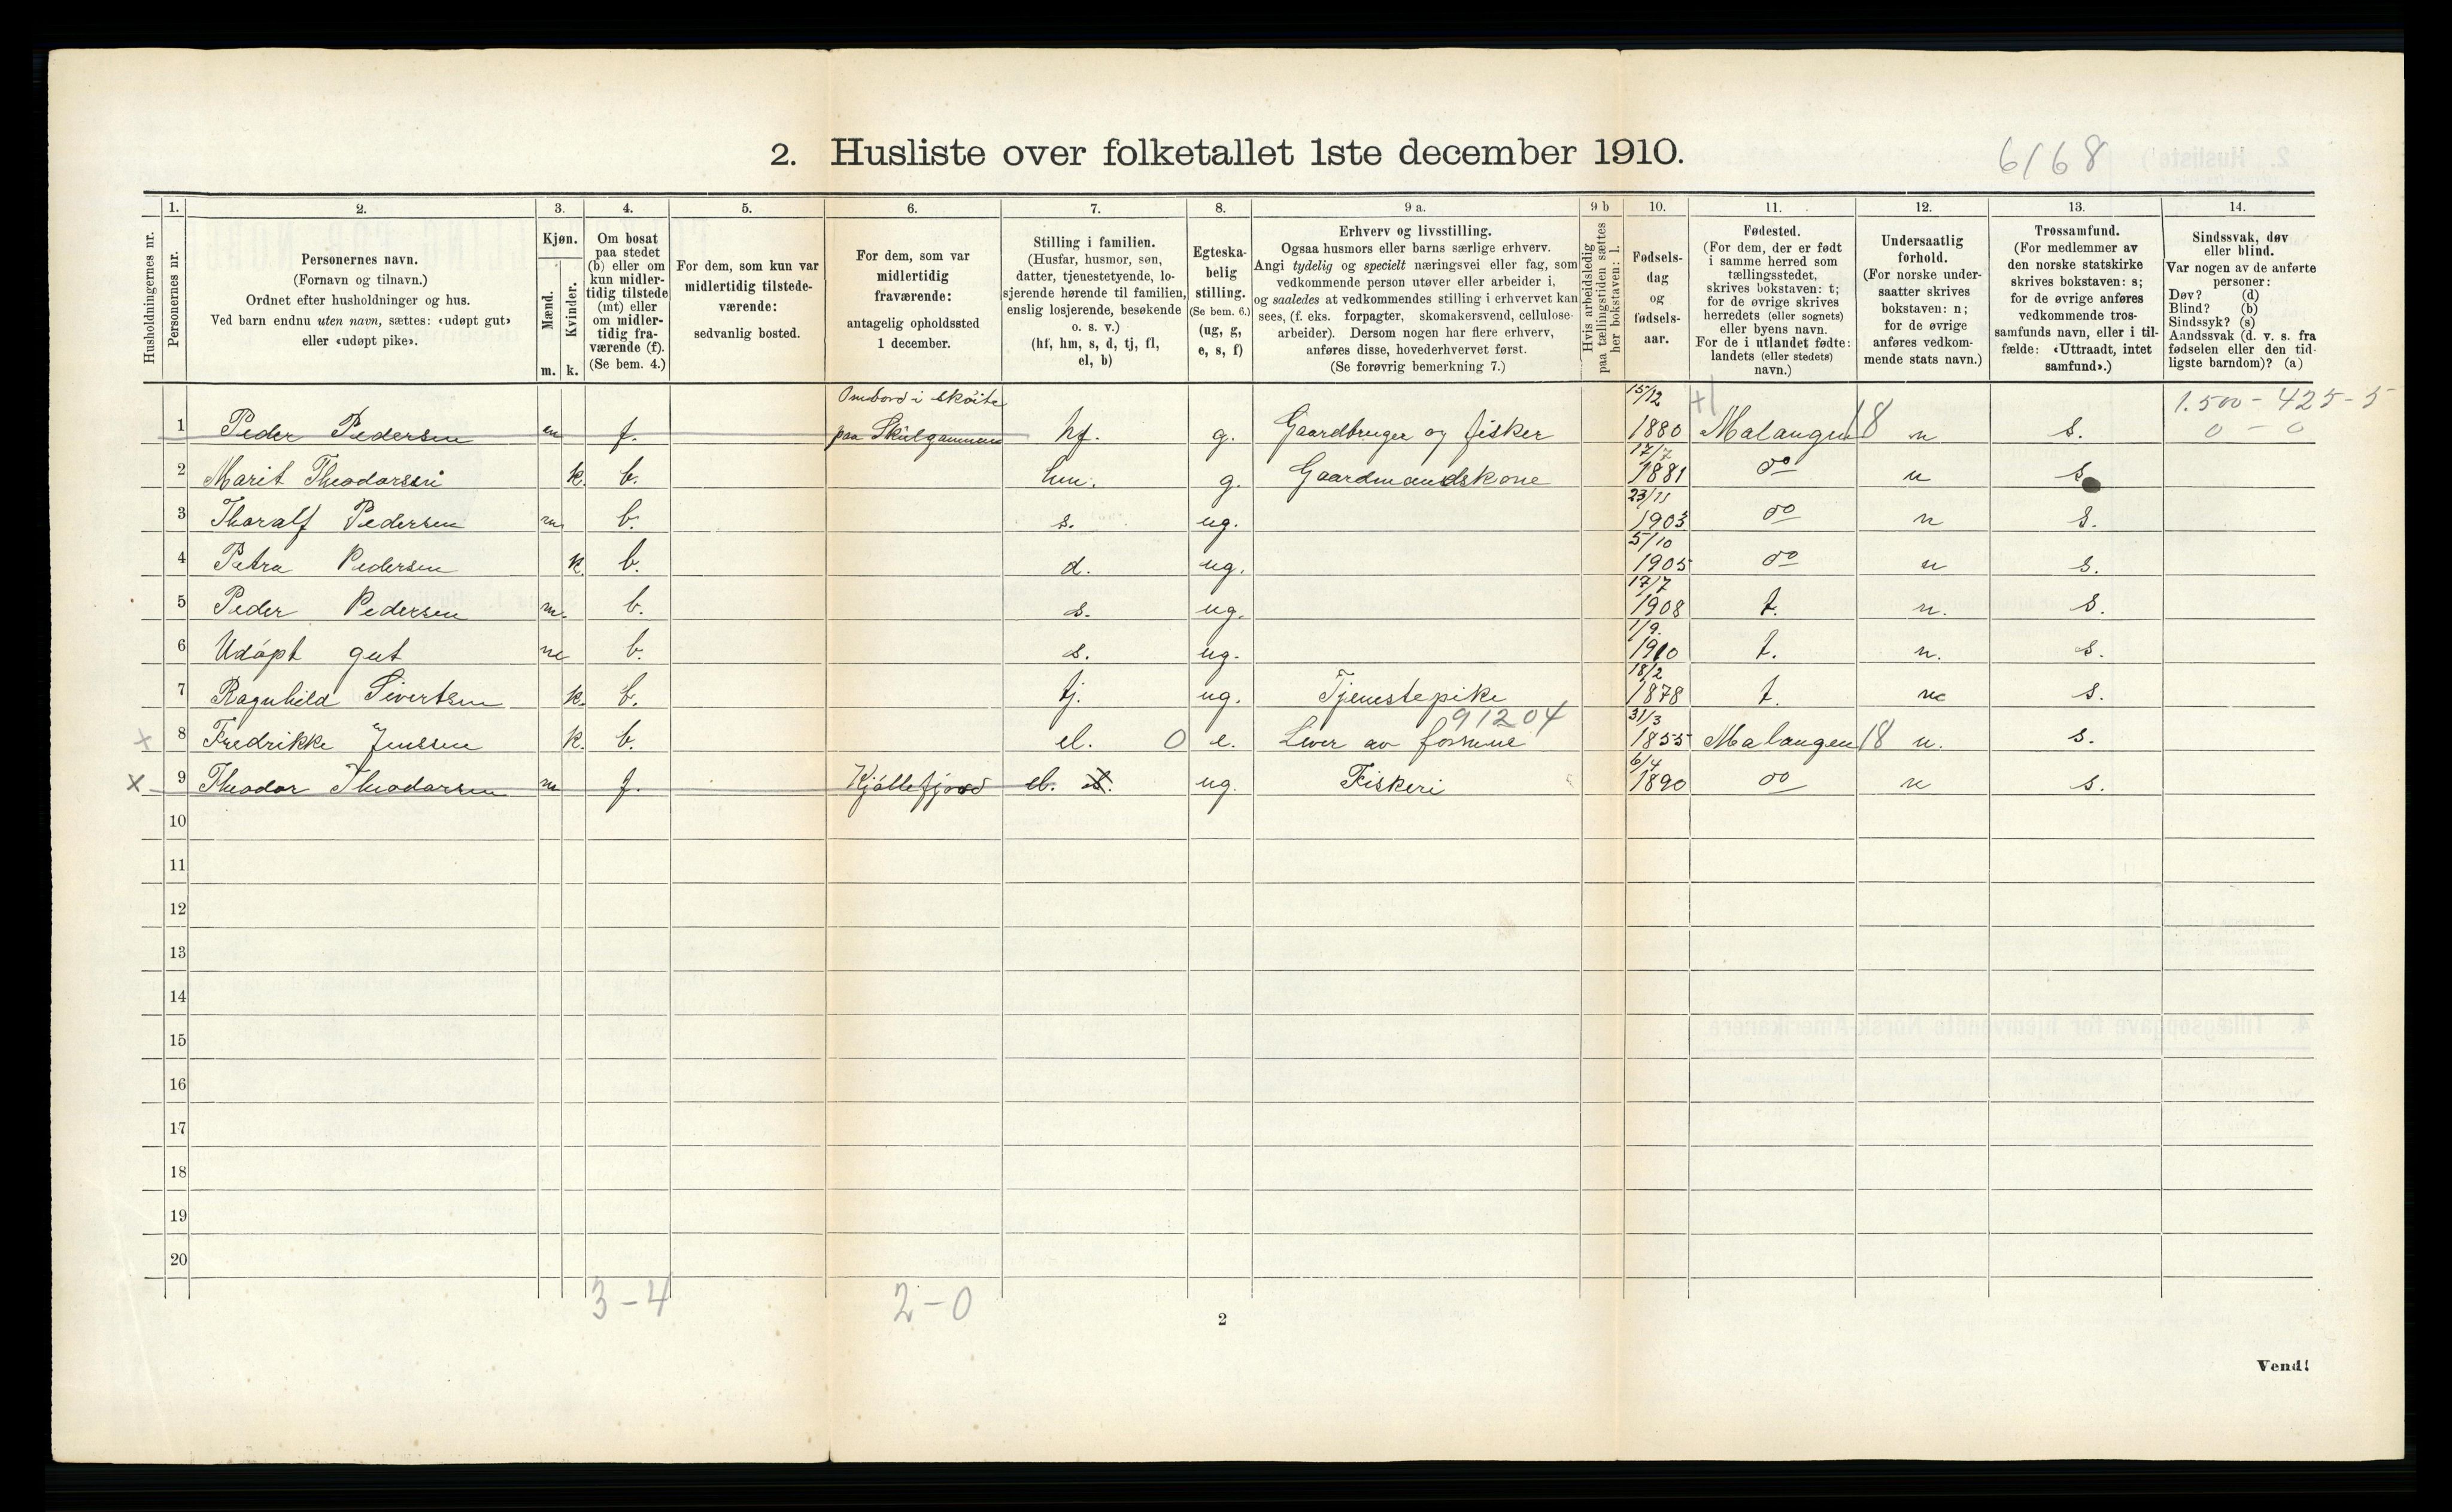 2. Husliste over folketallet 1ste december 1910.
6/68
Husholdningernes nr.
1.
Personernes nr.
2.
Personernes navn.
(Fornavn og tilnavn.)
Ordnet efter husholdninger og hus.
Ved barn endnu uten navn, sættes: «udøpt gut»
eller «udøpt pike».
3.
Kjøn.
Mænd.
Kvinder.
m. k.
4.
Om bosat
paa stedet
(b) eller om
kun midler-
tidig tilstede
(mt) eller
om midler-
tidig fra-
værende (f).
(Se bem. 4.)
5.
For dem, som kun var
midlertidig tilstede-
værende:
sedvanlig bosted.
6.
For dem, som var
midlertidig
fraværende:
antagelig opholdssted
1 december.
7.
Stilling i familien.
(Husfar, husmor, søn,
datter, tjenestetyende, lo-
sjerende hørende til familien,
enslig losjerende, besøkende
o. s. v.)
(hf, hm, s, d, tj, fl,
el, b)
8.
Egteska-
belig
stilling.
(Se bem. 6.)
(ug, g,
e, s, f)
9 a.
Erhverv og livsstilling.
Ogsaa husmors eller barns særlige erhverv.
Angi tydelig og specielt næringsvei eller fag, som
vedkommende person utøver eller arbeider i,
og saaledes at vedkommendes stilling i erhvervet kan
sees, (f. eks. forpagter, skomakersvend, cellulose-
arbeider). Dersom nogen har flere erhverv,
anføres disse, hovederhvervet først.
(Se forøvrig bemerkning 7.)
9 b
Hvis arbeidsledig
paa tællingstiden sættes
her bokstaven: l.
10.
Fødsels-
dag
og
fødsels-
aar.
11.
Fødested.
(For dem, der er født
i samme herred som
tællingsstedet,
skrives bokstaven: t;
for de øvrige skrives
herredets (eller sognets)
eller byens navn.
For de i utlandet fødte:
landets (eller stedets)
navn.)
12.
Undersaatlig
forhold.
(For norske under-
saatter skrives
bokstaven: n;
for de øvrige
anføres vedkom-
mende stats navn.)
13.
Trossamfund.
(For medlemmer av
den norske statskirke
skrives bokstaven: s;
for de øvrige anføres
vedkommende tros-
samfunds navn, eller i til-
fælde: «Uttraadt, intet
samfund».)
14.
Sindssvak, døv
eller blind.
Var nogen av de anførte
personer:
Døv? (d)
Blind? (b)
Sindssyk? (s)
Aandssvak (d. v. s. fra
fødselen eller den tid-
ligste barndom)? (a)
Ombord i skøite 15/12 1.500 - 425 - 5
1 Peder Pedersen m f. paa hf. g. Gaardbruger og fisker 1880 Malangen 18 n s. 0 - 0
17/7
2 Marit Theodorsen k. b. hm. g. Gaardmandskone 1881 do n s
23/11
3 Thoralf Pedersen m b. s. ug. 1903 do n s.
5/10
4 Petra Pedersen k. b. d. ug. 1905 do n s.
17/7
5 Peder Pedersen m. b. s. ug. 1908 t. n. s.
1/9.
6 Udøpt gut m b. s. ug. 1910 t. n. s.
18/2
7 Ragnhild Sivertsen k. b. tj. ug. Tjenestepike 1878 t. n s.
91204 31/3
x 8 Fredrikke Jenssen k. b. el. 0 e. Lever av formue 1855 Malangen 18 n. s.
6/4
x 9 Theodor Theodorsen m f. Kjøllefjord el. ug. Fiskeri 1890 do n s.
10
11
12
13
14
15
16
17
18
19
20
3-4 2-0
2
Vend!